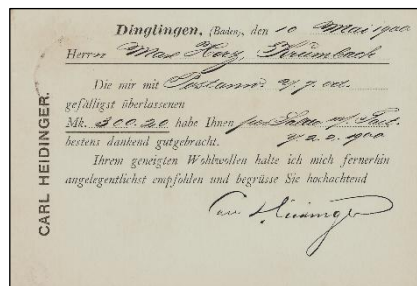 Dinglingen, (Baden), den 10 Mai 1900
Herrn Max Herz, Krumbach
Die mir mit Postanw. v/7. ct.
gefälligst überlassenen
Mk. 300.20 habe Ihnen per Saldo m/ Fact.
v/2.2.1900
bestens dankend gutgebracht.
Ihrem geneigten Wohlwollen halte ich mich fernerhin
angelegentlichst empfohlen und begrüsse Sie hochachtend
Carl Heidinger
CARL HEIDINGER.